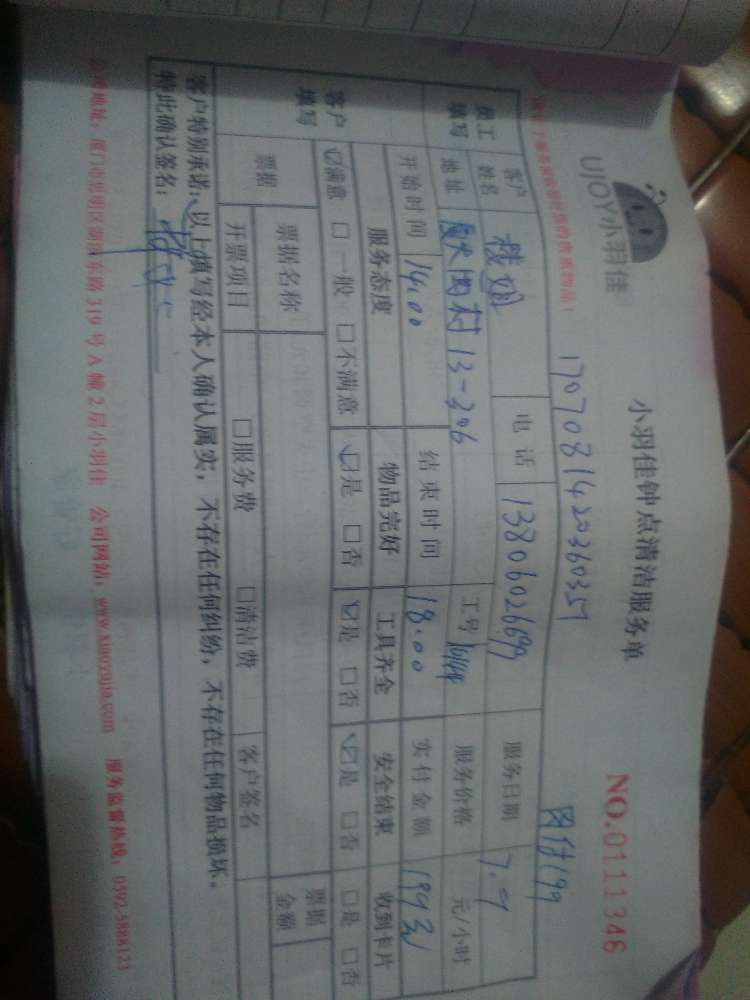 UJOY小羽佳
小羽佳钟点清洁服务单
NO.0111346
1707081422360357
员工填写
客户姓名 楼姐 电话 服务日期 7.9
地址 13-306 工号 服务价格 元/小时
开始时间 14:00 结束时间 18:00 实付金额 199元
客户填写
服务态度 物品完好 工具齐全 安全结束 收到卡片
☑满意 □一般 □不满意 ☑是 □否 ☑是 □否 ☑是 □否 □是 □否
票据 票据名称 票据金额
开票项目 □服务费 □清洁费 客户签名
客户特别承诺：以上填写经本人确认属实，不存在任何纠纷，不存在任何物品损坏。
特此确认签名：
319号A幢2层小羽佳 公司网站：www.xiaoyujia.com 服务监督热线：0592-5888123